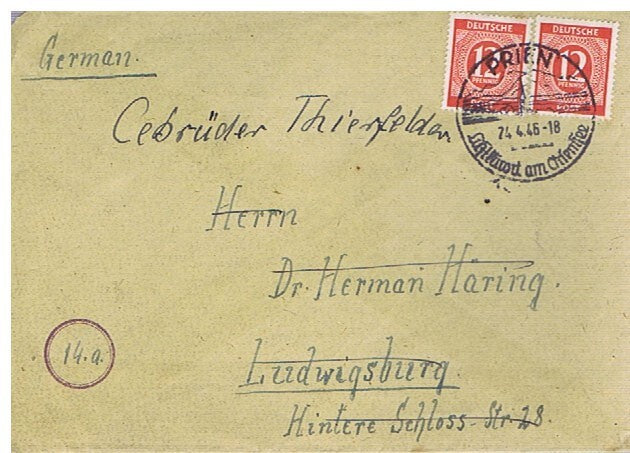 German.
DEUTSCHE DEUTSCHE
12 12
PFENNIG PFENNIG
POST
PRIEN
24.4.46-18
Luftkurort am Chiemsee
Gebrüder Thierfelder
Herrn
Dr. Herman Häring.
14.a.
Ludwigsburg.
Hintere Schloss-Str. 28.